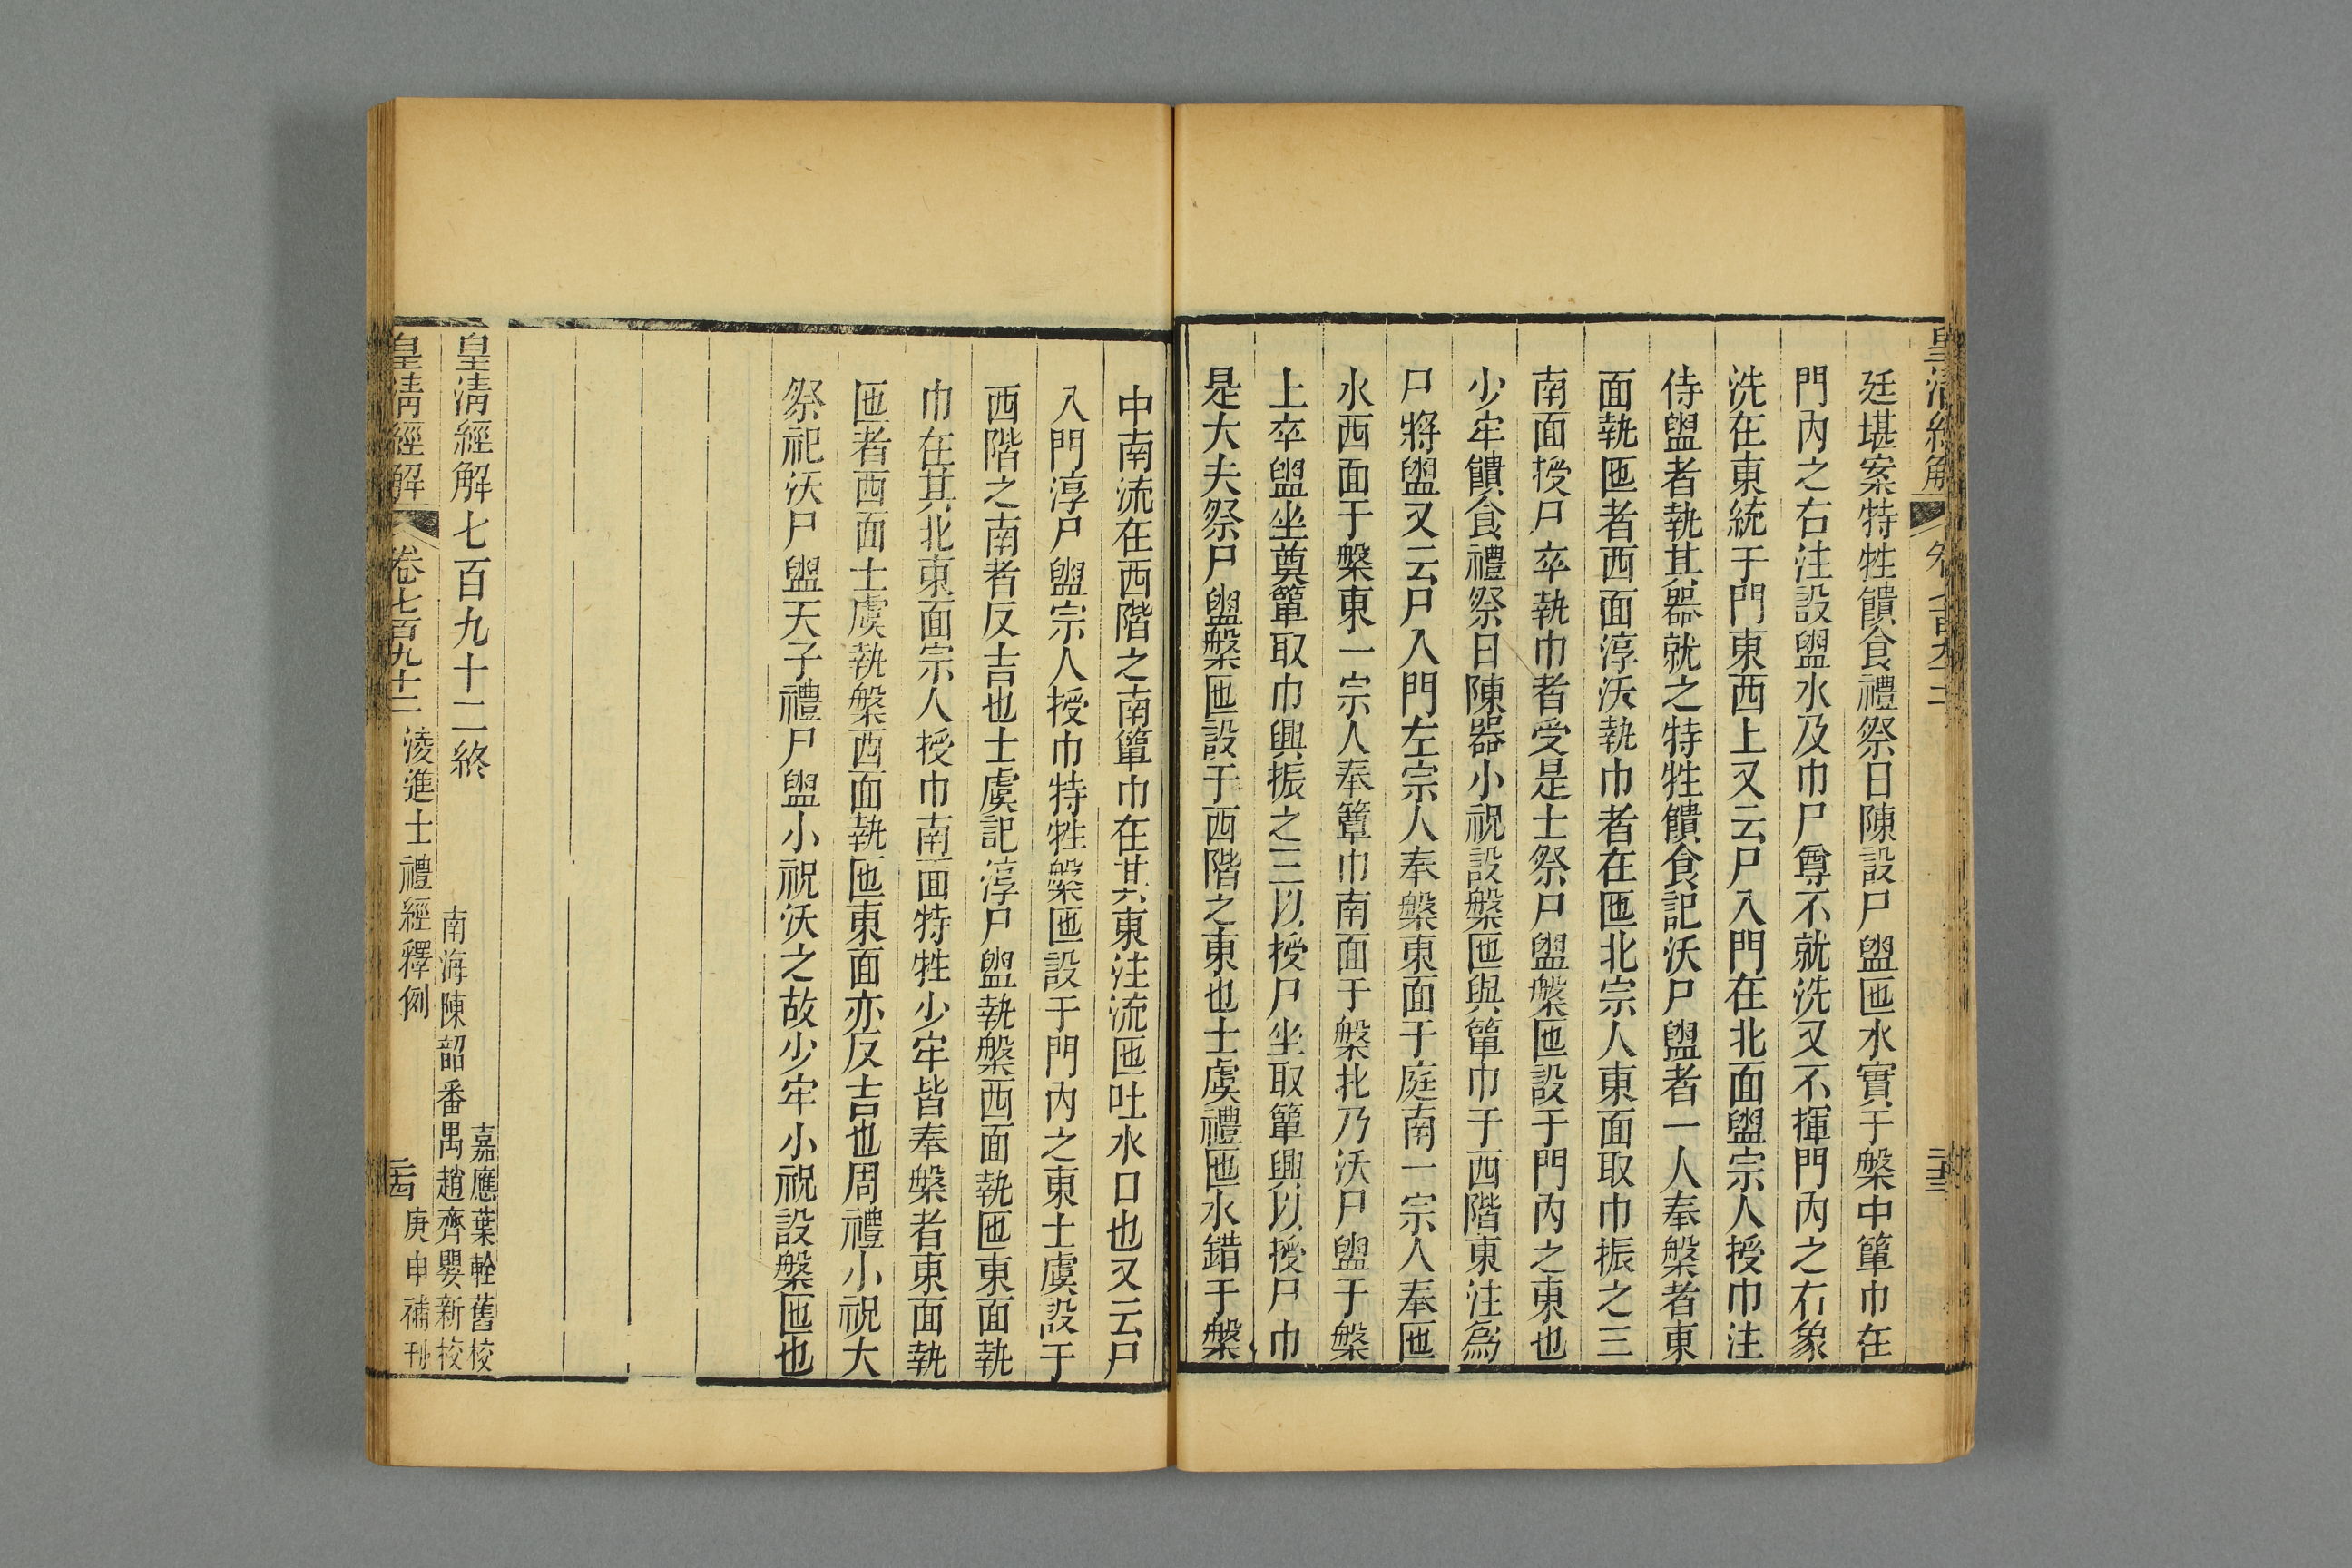 皇淸經解
廷堪案特牲饋食禮祭日陳設尸盥匜水實于槃中簞巾在
門內之右注設盥水及巾尸尊不就洗又不揮門內之右象
洗在東統于門東西上又云尸入門在北面盥宗人授巾注
侍盥者執其器就之特牲饋食記沃尸盥者一人奉槃者東
面執匜者西面淳沃執巾者在匜北宗人東面取巾振之三
南面授尸卒執巾者受是士祭尸盥槃匜設于門內之東也
少牢饋食禮祭日陳器小祝設槃匜與簞巾于西階東注爲
尸將盥又云尸入門左宗人奉槃東面于庭南一宗人奉匜
水西面于槃東一宗人奉簞巾南面于槃北乃沃尸盥于槃
上卒盥坐奠簞取巾興振之三以授尸坐取簞興以授尸巾
是大夫祭尸盥槃匜設于西階之東也士虞禮匜水錯于槃
中南流在西階之南簞巾在其東注流匜吐水口也又云尸
入門淳尸盥宗人授巾特牲槃匜設于門內之東士虞設于
西階之南者反吉也士虞記淳尸盥執槃西面執匜東面執
巾在其北東面宗人授巾南面特牲少牢皆奉槃者東面執
匜者西面士虞執槃西面執匜東面亦反吉也周禮小祝大
祭祀沃尸盥天子禮尸盥小祝沃之故少牢小祝設槃匜也
皇淸經解七百九十二終
嘉應葉𨋢舊校
南海陳韶番禺趙齊嬰新校
皇淸經解 卷七百九十二 淩進士禮經釋例 庚申補刊